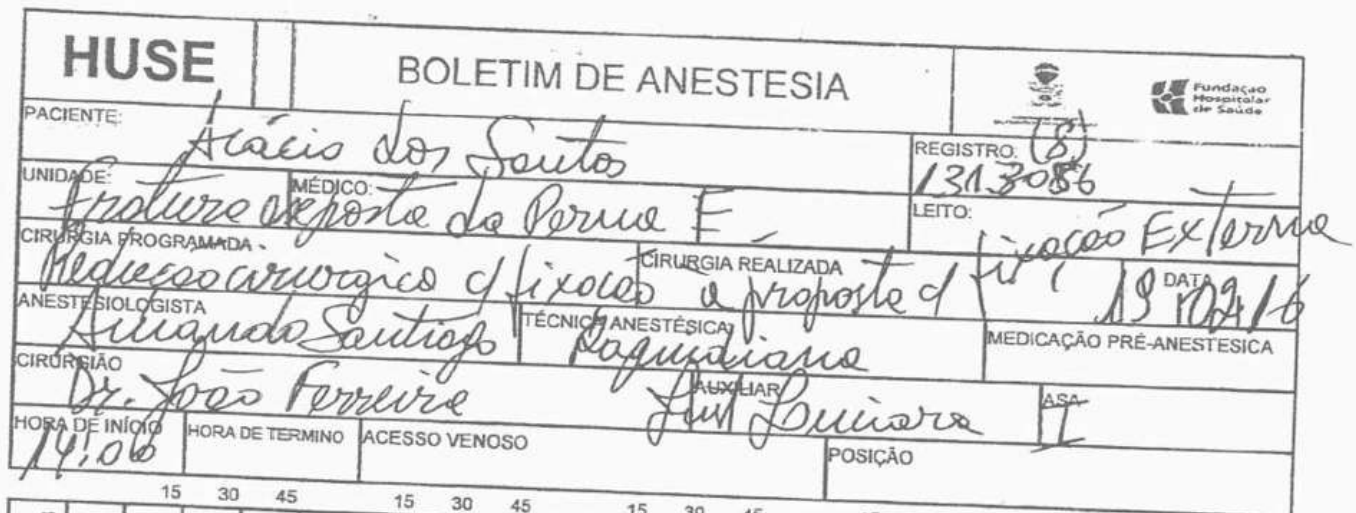 HUSE BOLETIM DE ANESTESIA Fundação Hospitalar de Saúde
PACIENTE: Acácio dos Santos REGISTRO: (8) 1313086
UNIDADE: MÉDICO: LEITO:
Fratura exposta da Perna E
CIRURGIA PROGRAMADA Redução cirurgica c/ fixação CIRURGIA REALIZADA a proposta c/ fixação Externa DATA 19/02/16
ANESTESIOLOGISTA Armando Santiago TÉCNICA ANESTÉSICA Raquidiana MEDICAÇÃO PRÉ-ANESTESICA
CIRURGIÃO Dr. João Ferreira AUXILIAR ASA I
HORA DE INÍCIO 14:06 HORA DE TERMINO ACESSO VENOSO POSIÇÃO
15 30 45 15 30 45 15 30 45